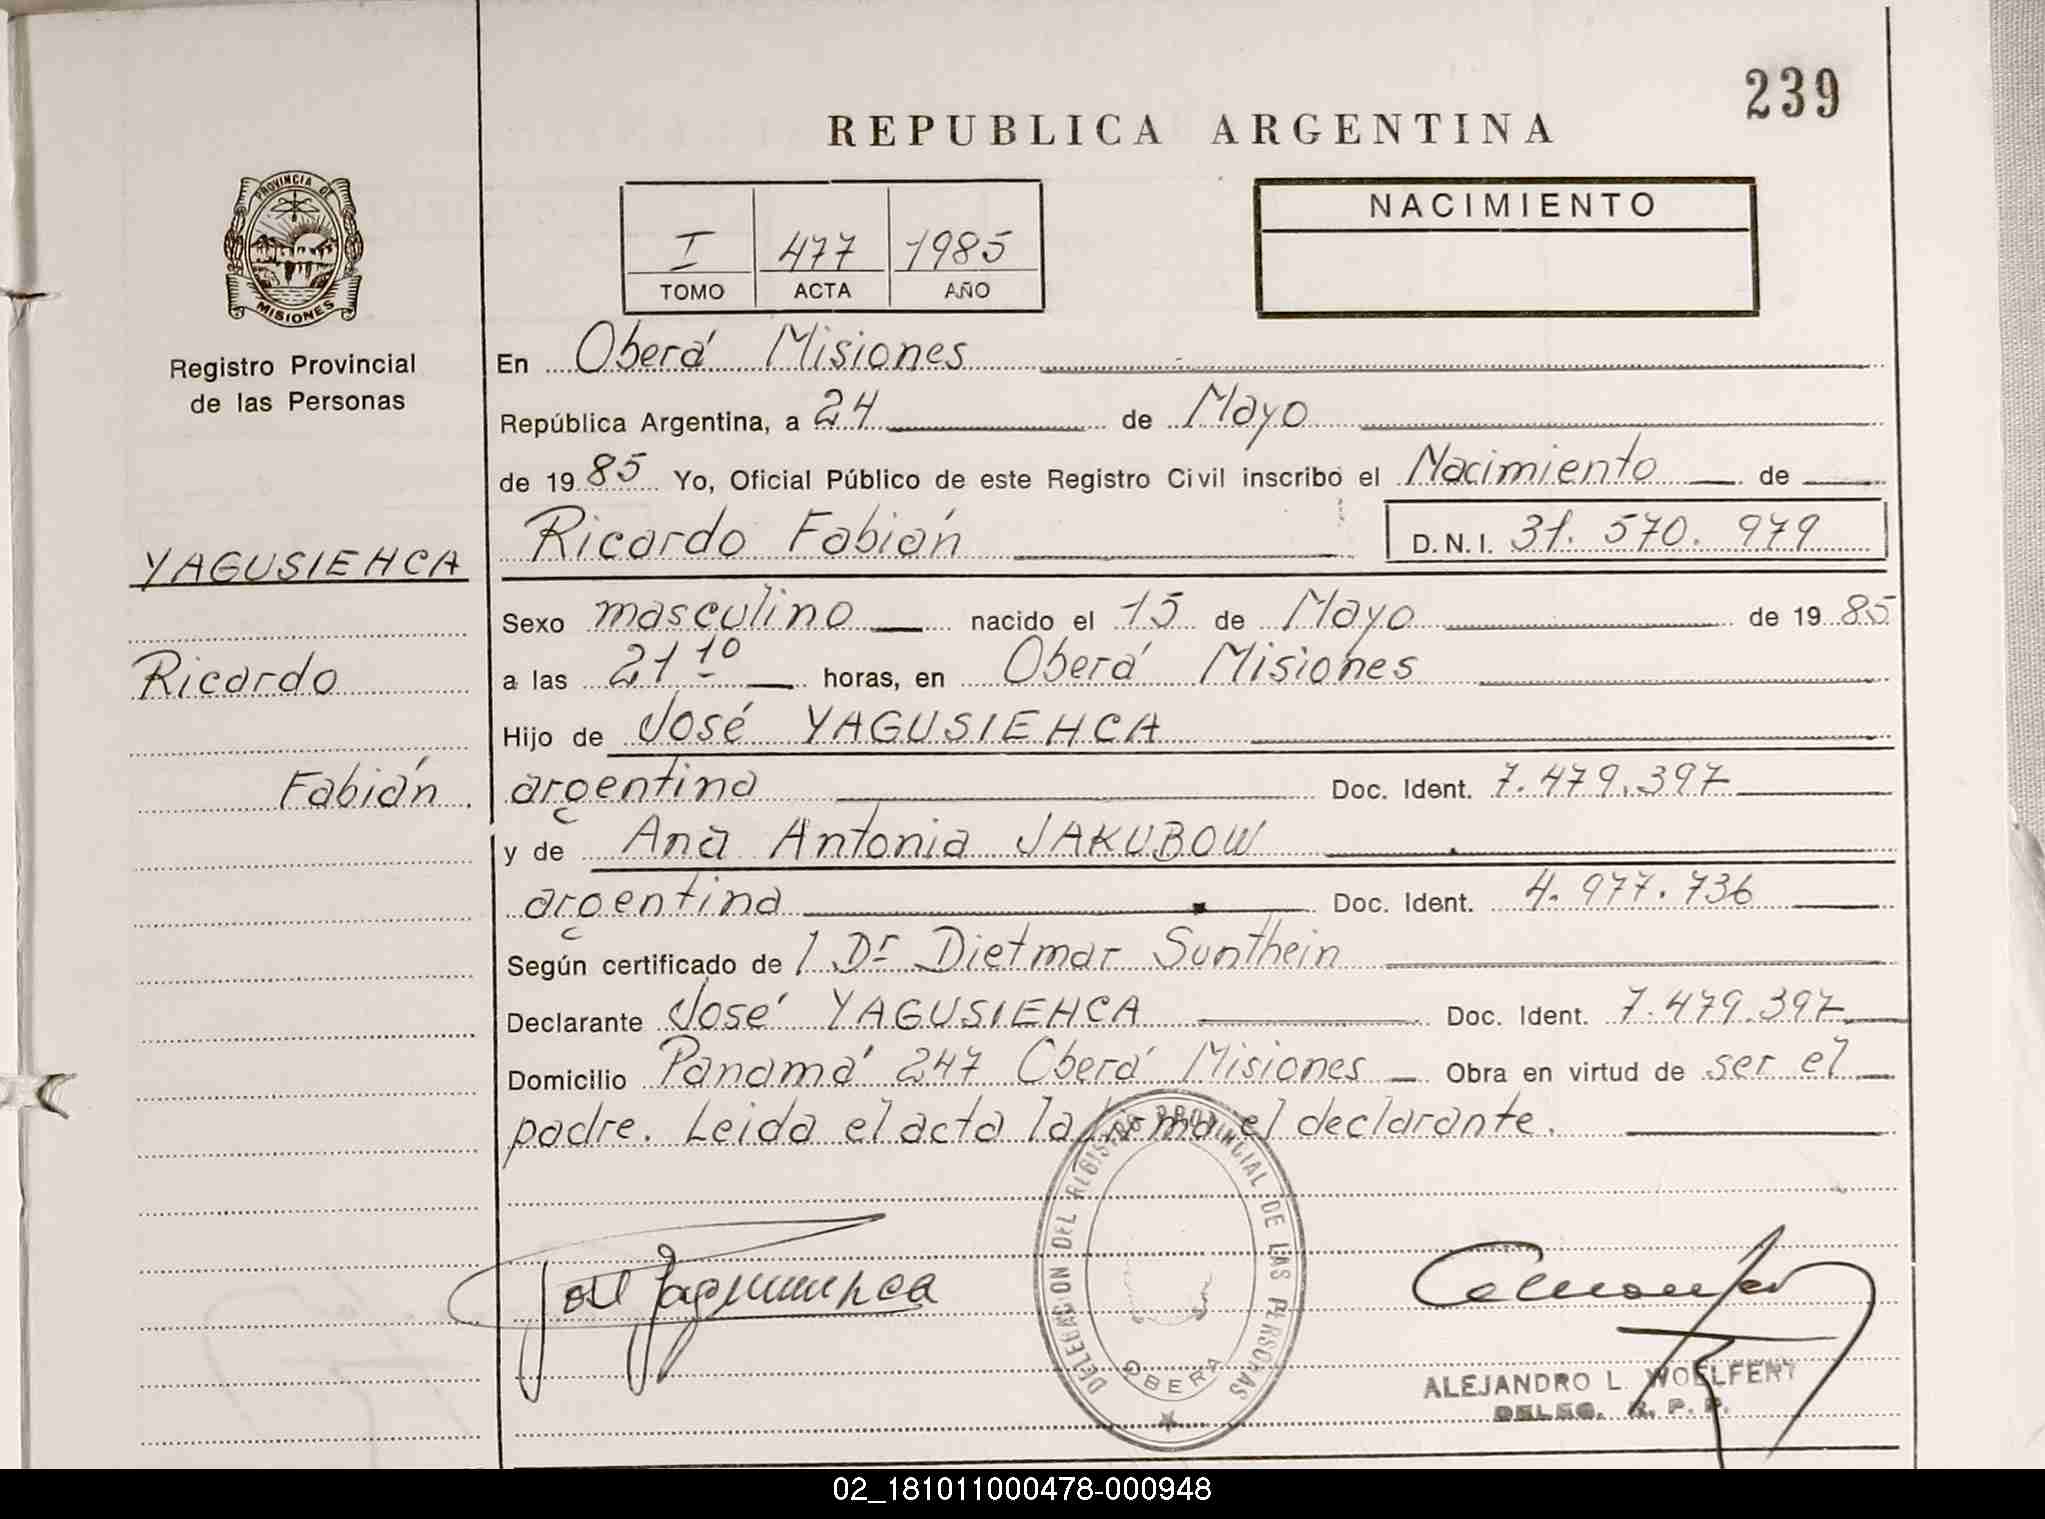 239
REPUBLICA ARGENTINA
PROVINCIA DE
MISIONES
Registro Provincial
de las Personas
I 477 1985
TOMO ACTA AÑO
NACIMIENTO
En Oberá Misiones
República Argentina, a 24 de Mayo
de 1985 Yo, Oficial Público de este Registro Civil inscribo el Nacimiento de
YAGUSIEHCA
Ricardo
Fabián
Ricardo Fabián D.N.I. 31.570.979
Sexo masculino nacido el 15 de Mayo de 1985
a las 21 10 horas, en Oberá Misiones
Hijo de José YAGUSIEHCA
argentina Doc. Ident. 7.479.397
y de Ana Antonia JAKUBOW
argentina Doc. Ident. 4.977.736
Según certificado de 1 Dr Dietmar Sunthein
Declarante José YAGUSIEHCA Doc. Ident. 7.479.397
Domicilio Panamá 247 Oberá Misiones Obra en virtud de ser el
padre. Leida el acta la firma el declarante.
DELEGACION DEL REGISTRO PROVINCIAL DE LAS PERSONAS
OBERA
ALEJANDRO L. WOELFERT
DELEG. R. P. P.
02_181011000478-000948